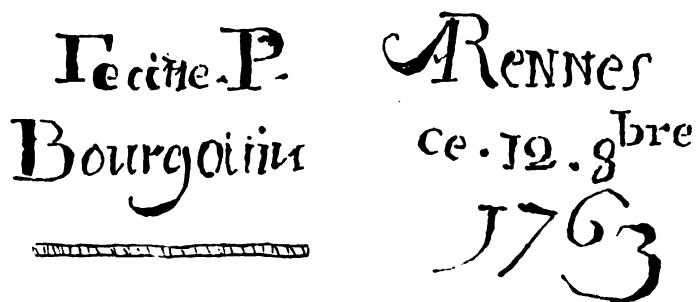 Fecitte. P.
Bourgouin
A Rennes
ce. 12. 8bre
1763